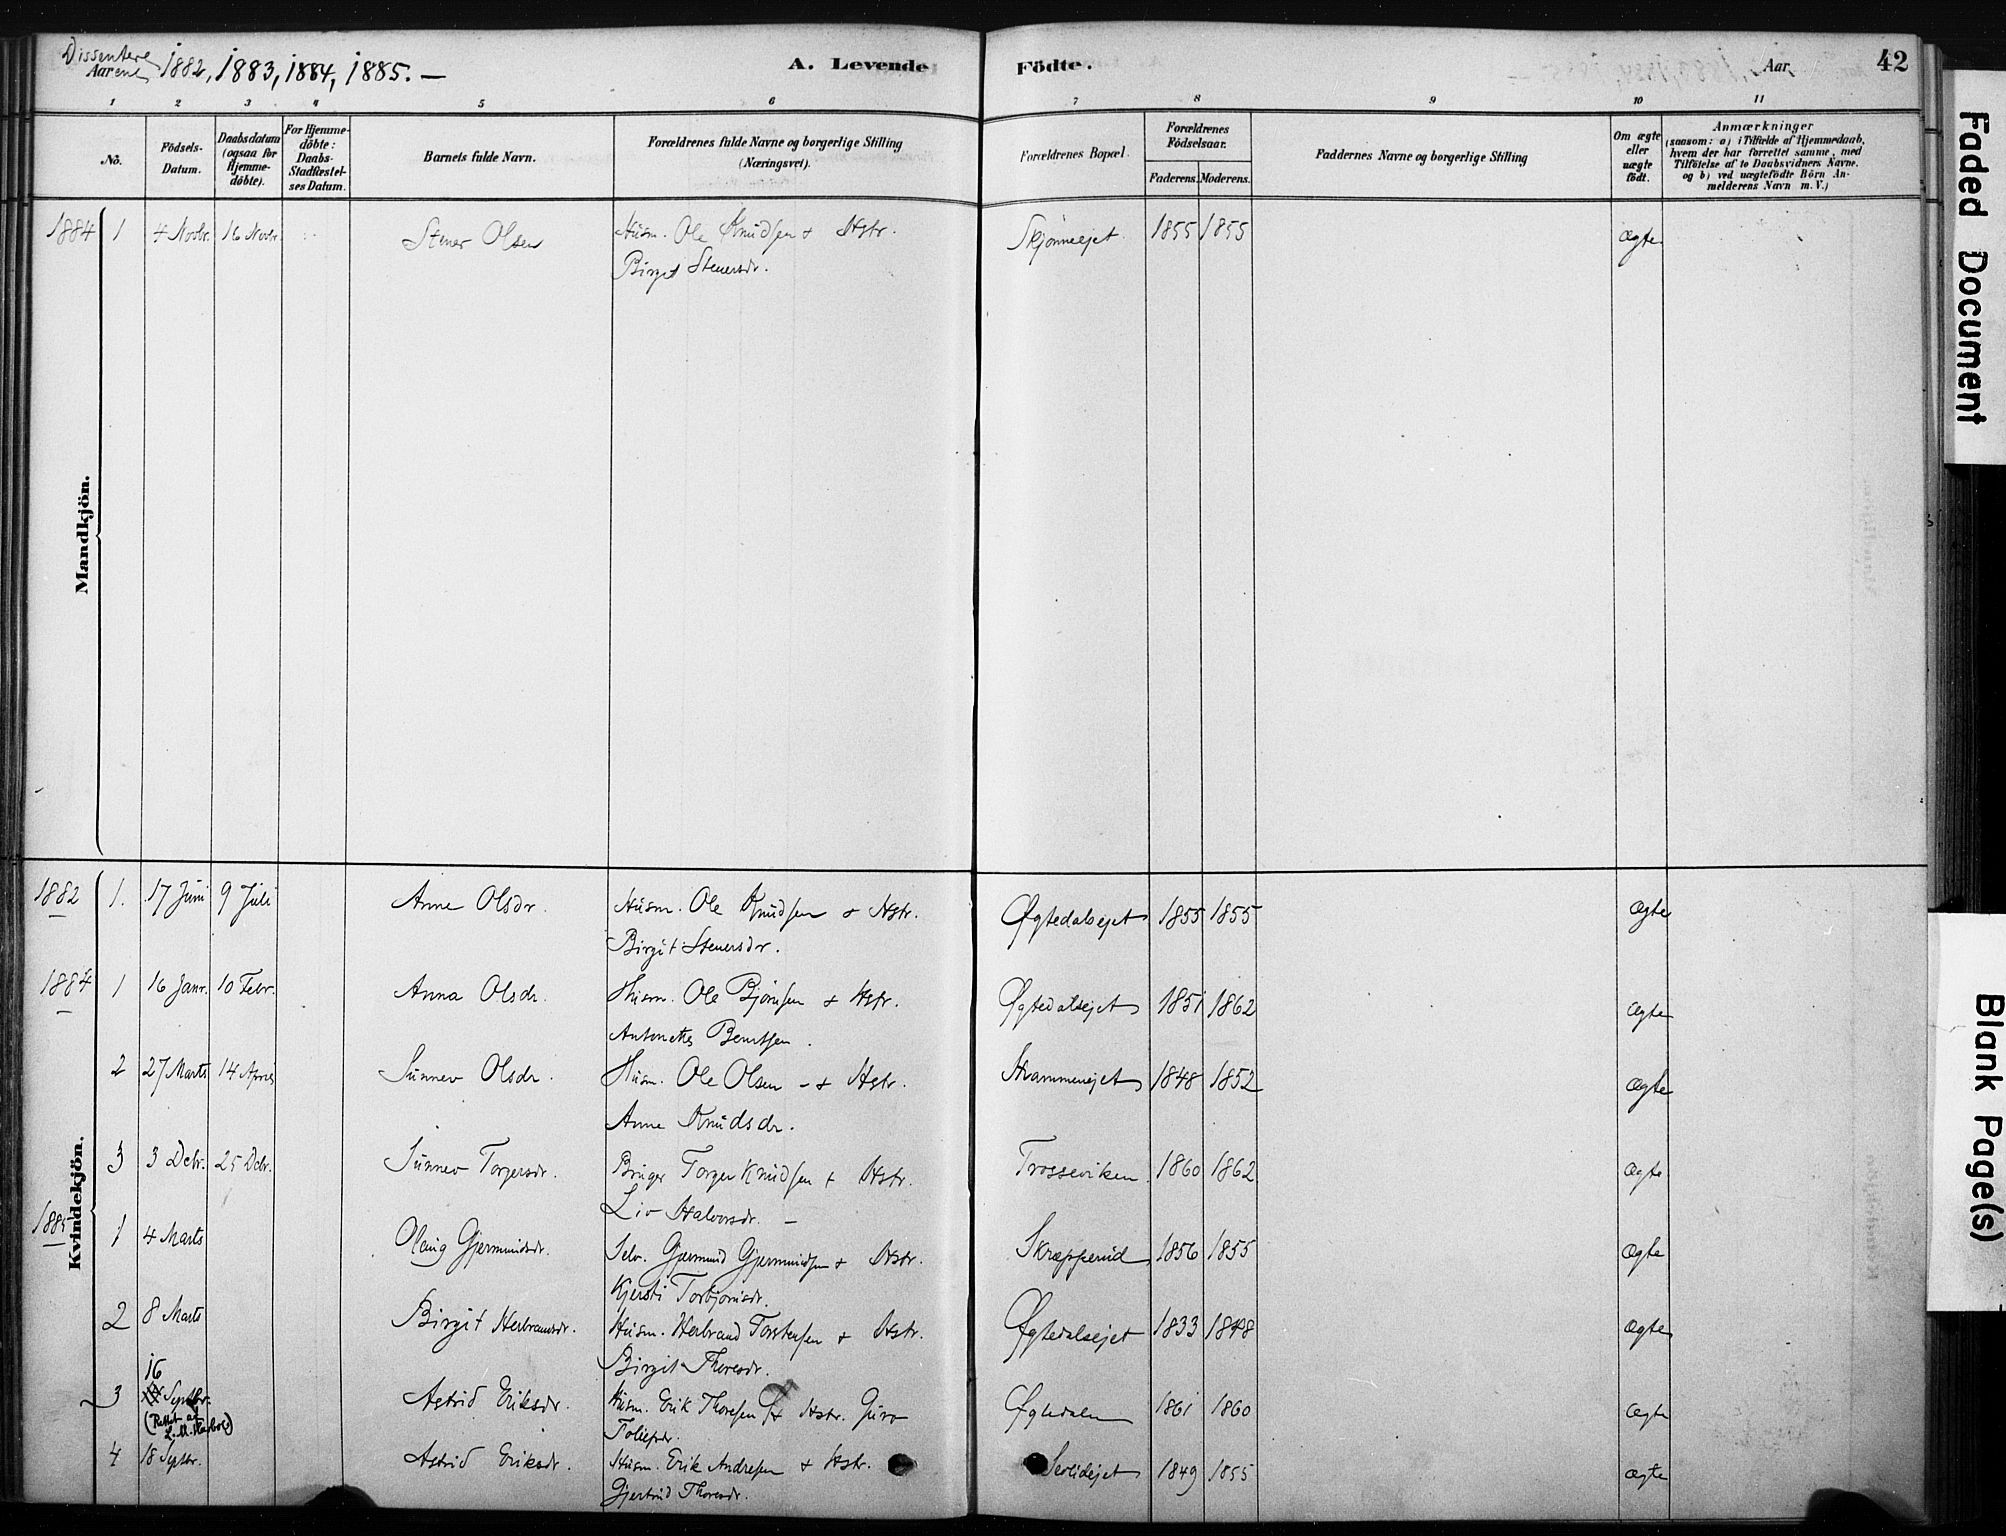 Dissentere
Aarene 1882, 1883, 1884, 1885. —
A. Levende Födte.
Aar
42
1 2 3 4 5 6 7 8 9 10 11
No.
Födsels-
Datum.
Daabsdatum
(ogsaa for
Hjemme-
döbte).
For Hjemme-
döbte:
Daabs-
Stadfæstel-
ses Datum.
Barnets fulde Navn.
Forældrenes fulde Navne og borgerlige Stilling
(Næringsvei).
Forældrenes Bopæl.
Forældrenes
Födselsaar.
Faderens. Moderens.
Faddernes Navne og borgerlige Stilling
Om ægte
eller
uægte
födt.
Anmærkninger
(saasom: a) i Tilfælde af Hjemmedaab,
hvem der har forrettet samme, med
Tilföielse af to Daabsvidners Navne,
og b) ved uægtefödte Börn An-
melderens Navn m. V.)
Mandkjön.
1884 1 4 Novbr. 16 Novbr. Stener Olsen Husm. Ole Knudsen + Hstr. Skjønneejet 1855 1855 ægte
Birgit Stenersdr.
Kvindekjön.
1882 1. 17 Juni 9 Juli Anne Olsdr. Husm. Ole Knudsen + Hstr. Øgtedalsejet 1855 1855 ægte
Birgit Stenersdr.
1884 1 16 Janr. 10 Febr. Anna Olsdr. Husm. Ole Bjørnsen + Hstr. Øgtedalsejet 1851 1862 ægte
Antonette Berntsen.
2 27 Marts 14 April Sünnev Olsdr. Husm. Ole Olsen + Hstr. 1848 1852 ægte
Anne Knudsdr.
3 3 Debr. 25 Debr. Sünnev Torgersdr. Bruger Torger Knudsen + Hstr. Trosseviken 1860 1862 ægte
Liv Halvorsdr. —
1885 1 4 Marts Olaug Gjermundsdr. Selv. Gjermund Gjermundsen + Hstr. Skræpperud 1856 1855 ægte
Kjersti Torbjørnsdr.
2 8 Marts Birgit Herbrandsdr. Husm. Herbrand Torstensen + Hstr. Øgtedalsejet 1833 1848 ægte
Birgit Thoresdr.
16
3 Septbr. Astrid Eriksdr. Husm. Erik Thoresen + Hstr. Guro Øgtedalen 1861 1860 ægte
(Rettet af
Tollefsdr.
4 18 Septbr. Astrid Eriksdr. Husm. Erik Andresen + Hstr. 1849 1855 ægte
Gjertrud Thoresdr.
Faded Document
Blank Page(s)